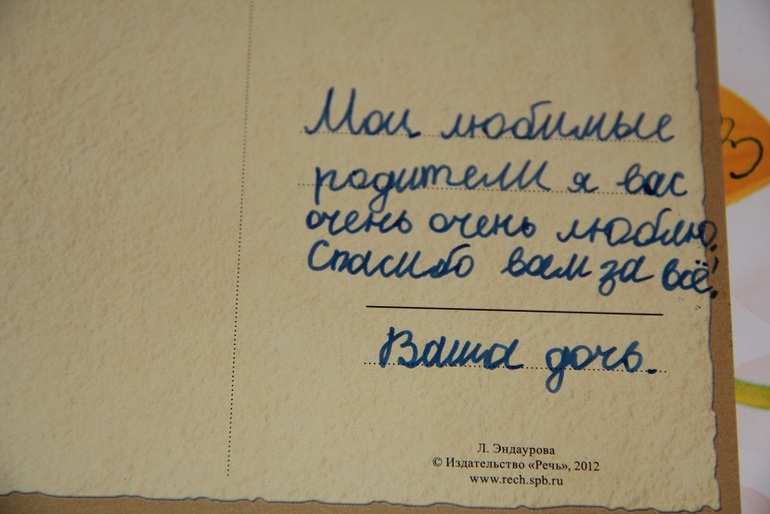 Мои любимые
родители я вас
очень очень люблю.
Спасибо вам за всё!
Ваша дочь.
Л. Эндаурова
© Издательство «Речь», 2012
www.rech.spb.ru